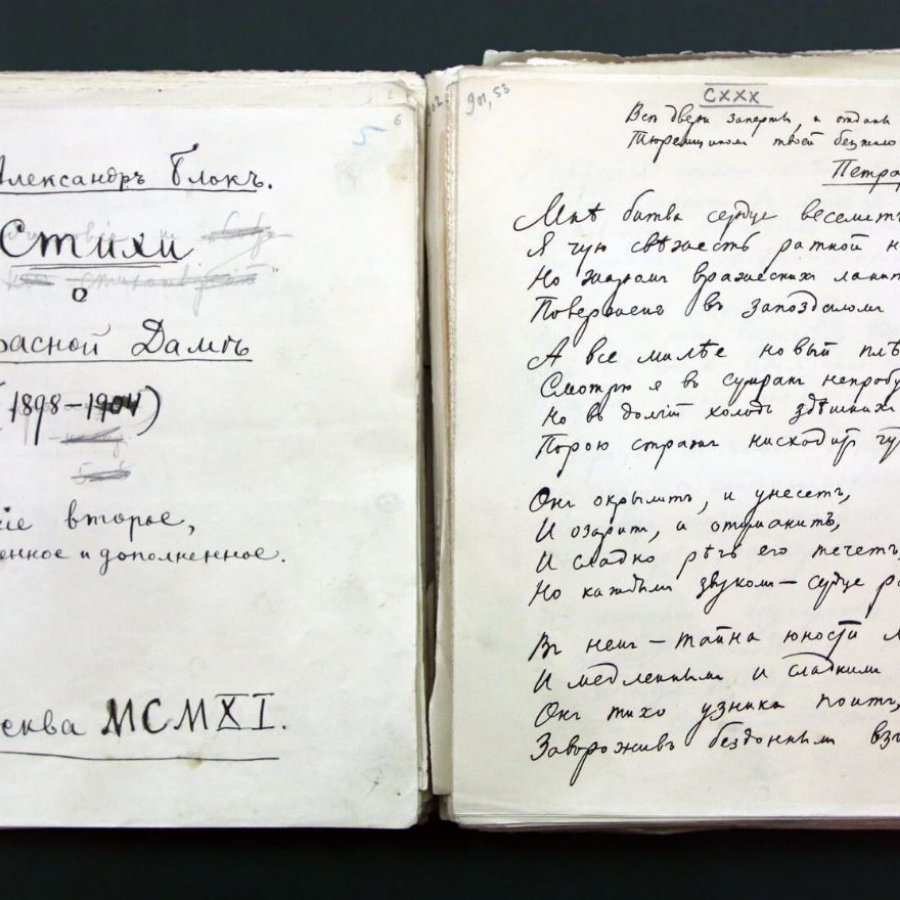 Александръ Блокъ.
Стихи
о
расной Дамѣ
(1898–1904)
ніе второе,
енное и дополненное.
сква MCMXI.
5
6
901,53
CXXX
Всѣ двери заперты, и отданы
Тюремщикомъ твоей безжало
Петра
Мнѣ битва сердце веселитъ
Я чую свѣжесть ратной н
Но жаромъ вражескихъ ланитъ
Поверженъ въ запоздаломъ
А все милѣе новый плѣ
Смотрю я въ сумракъ непробу
Но въ долгій холодъ здѣшнихъ
Порою стражъ нисходитъ чу
Онъ окрылитъ, и унесетъ,
И озаритъ, и отуманитъ,
И сладко рѣчь его течетъ,
Но каждымъ звукомъ – сердце ра
Въ немъ – тайна юности
И медленнымъ и сладкимъ
Онъ тихо узника поитъ,
Заворожив бездоннымъ вз